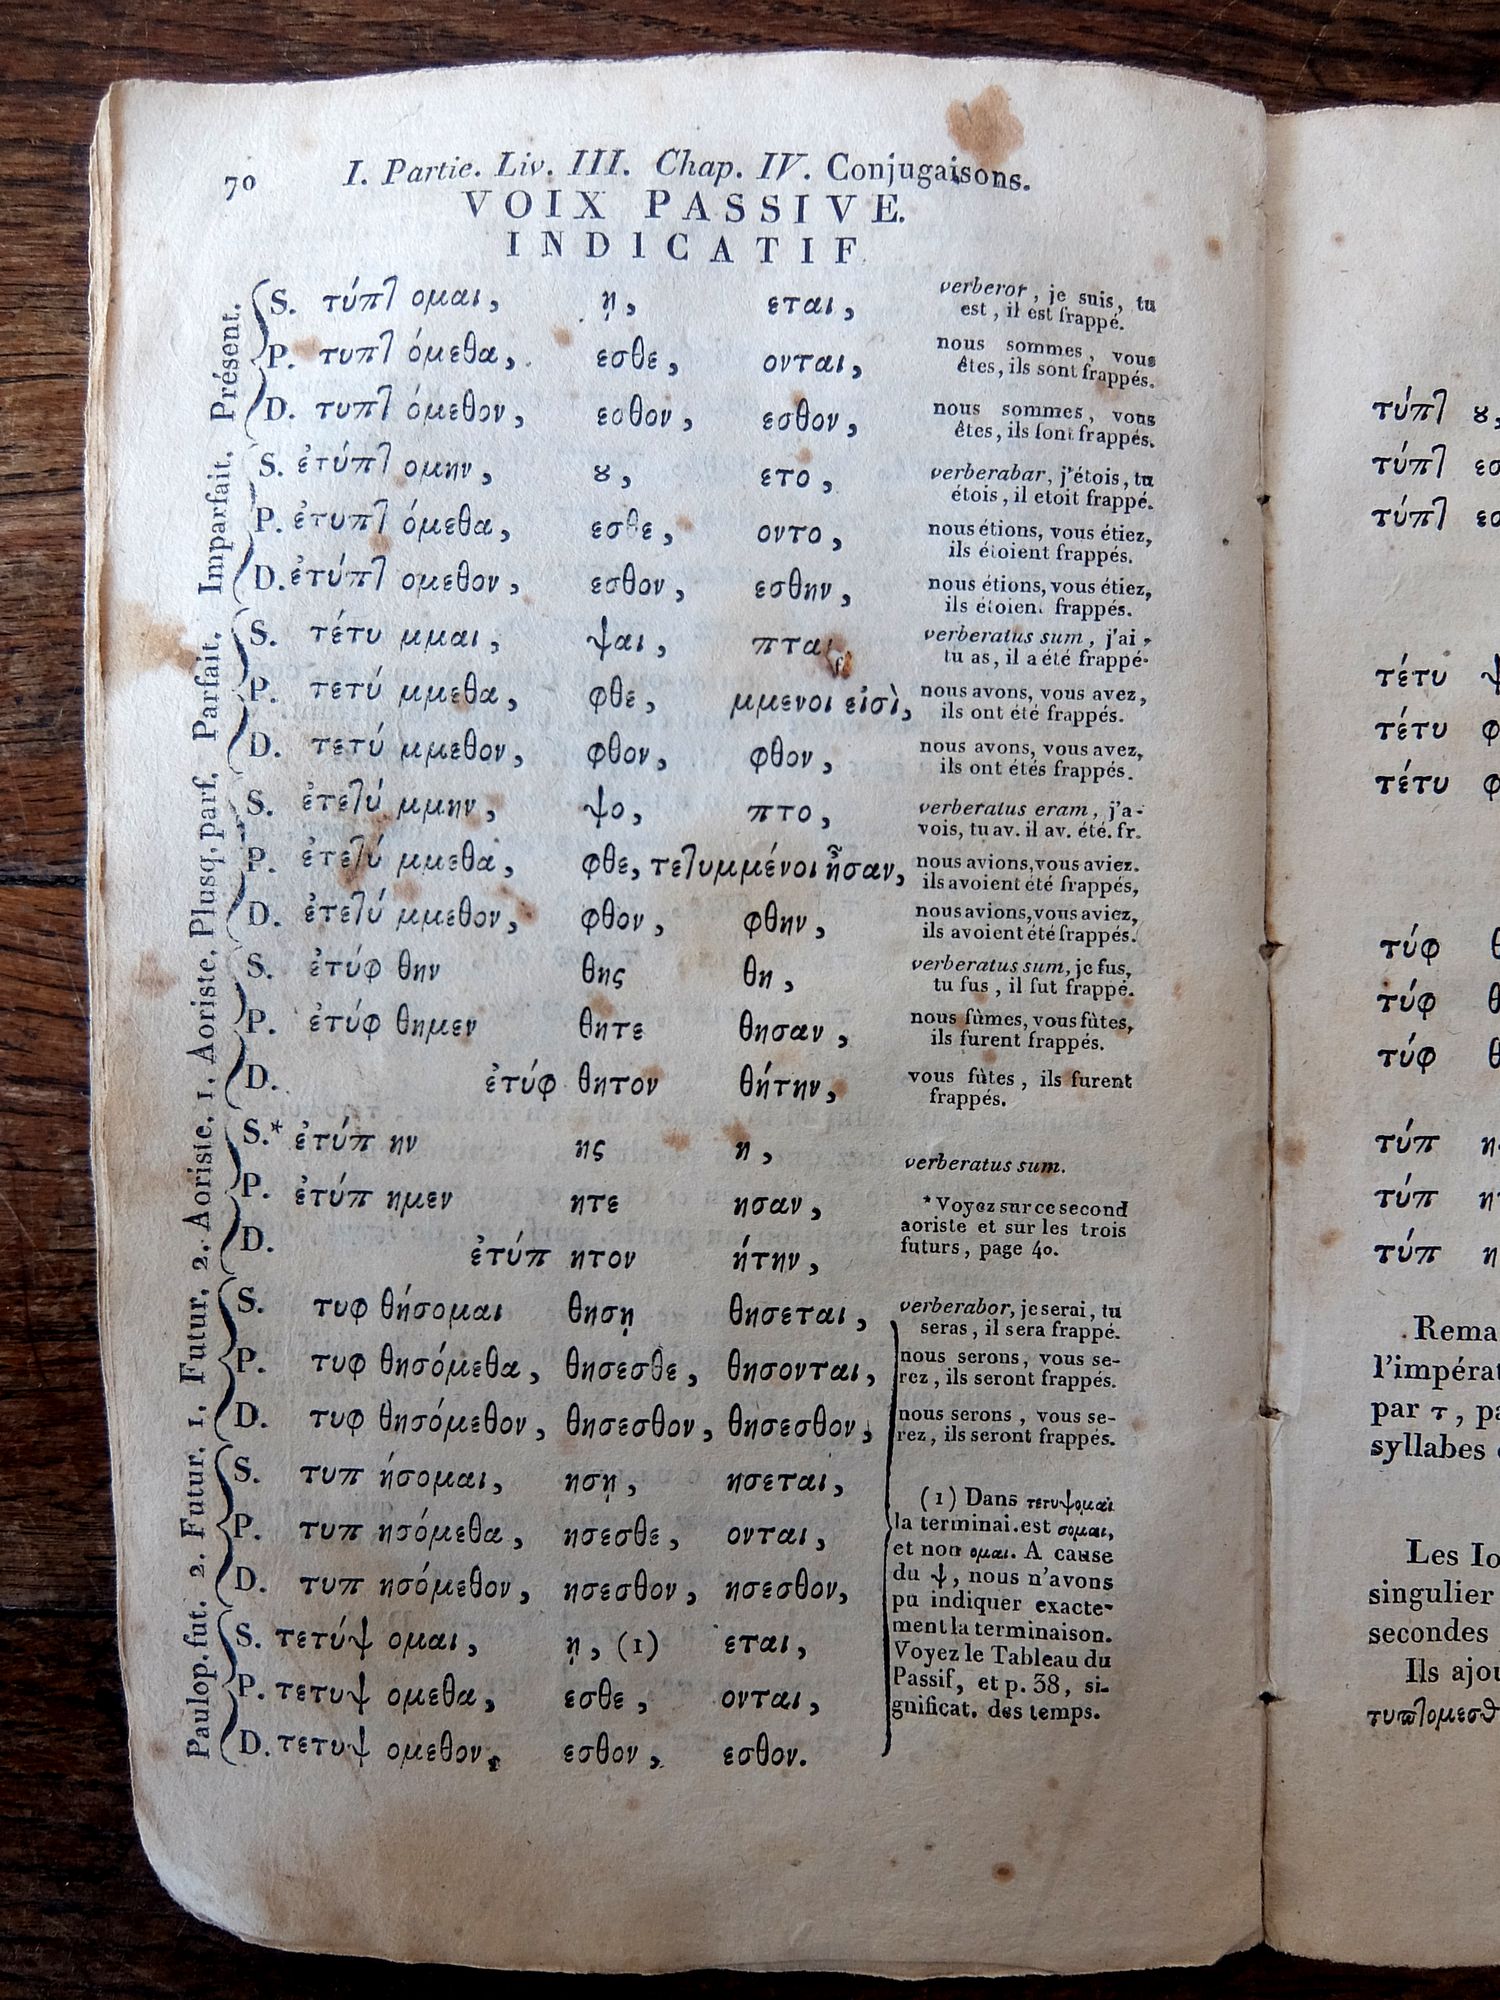 70 I. Partie. Liv. III. Chap. IV. Conjugaisons.
VOIX PASSIVE.
INDICATIF
Présent.
S. τύπ⁊ ομαι, ῃ, εται, verberor, je suis, tu
est, il est frappé.
P. τυπ⁊ όμεθα, εσθε, ονται, nous sommes, vous
êtes, ils sont frappés.
D. τυπ⁊ όμεθον, εσθον, εσθον, nous sommes, vous
êtes, ils sont frappés.
Imparfait.
S. ἐτύπ⁊ ομην, ȣ, ετο, verberabar, j'étois, tu
étois, il etoit frappé.
P. ἐτυπ⁊ όμεθα, εσθε, οντο, nous étions, vous étiez,
ils étoient frappés.
D. ἐτύπ⁊ ομεθον, εσθον, εσθην, nous étions, vous étiez,
ils étoient frappés.
Parfait.
S. τέτυ μμαι, ψαι, πται verberatus sum, j'ai,
tu as, il a été frappé.
P. τετύ μμεθα, φθε, μμενοι εἰσὶ, nous avons, vous avez,
ils ont été frappés.
D. τετύ μμεθον, φθον, φθον, nous avons, vous avez,
ils ont étés frappés.
Plusq. parf.
S. ἐτε⁊ύ μμην, ψο, πτο, verberatus eram, j'a-
vois, tu av. il av. été. fr.
P. ἐτε⁊ύ μμεθα, φθε, τε⁊υμμένοι ἦσαν, nous avions, vous aviez.
ils avoient été frappés,
D. ἐτε⁊ύ μμεθον, φθον, φθην, nous avions, vous aviez,
ils avoient été frappés.
1. Aoriste.
S. ἐτύφ θην θης θη, verberatus sum, je fus,
tu fus, il fut frappé.
P. ἐτύφ θημεν θητε θησαν, nous fûmes, vous fûtes,
ils furent frappés.
D. ἐτύφ θητον θήτην, vous fûtes, ils furent
frappés.
2. Aoriste.
S.* ἐτύπ ην ης η, verberatus sum.
P. ἐτύπ ημεν ητε ησαν,
D. ἐτύπ ητον ήτην,
* Voyez sur ce second
aoriste et sur les trois
futurs, page 40.
1. Futur.
S. τυφ θήσομαι θησῃ θησεται, verberabor, je serai, tu
seras, il sera frappé.
P. τυφ θησόμεθα, θησεσθε, θησονται, nous serons, vous se-
rez, ils seront frappés.
D. τυφ θησόμεθον, θησεσθον, θησεσθον, nous serons, vous se-
rez, ils seront frappés.
2. Futur.
S. τυπ ήσομαι, ησῃ, ησεται,
P. τυπ ησόμεθα, ησεσθε, ονται,
D. τυπ ησόμεθον, ησεσθον, ησεσθον,
Paulop. fut.
S. τετύψ ομαι, ῃ, (1) εται,
P. τετυψ ομεθα, εσθε, ονται,
D. τετυψ ομεθον, εσθον, εσθον.
(1) Dans τετυψομαι
la terminai. est σομαι,
et non ομαι. A cause
du ψ, nous n'avons
pu indiquer exacte-
ment la terminaison.
Voyez le Tableau du
Passif, et p. 38, si-
gnificat. des temps.
τύπ⁊ ȣ,
τύπ⁊
τύπ⁊
τέτυ
τέτυ
τέτυ
τύφ
τύφ
τύφ
τύπ
τύπ
τύπ
l'impérat
par τ,
syllabes
Les
singulier
secondes
Ils